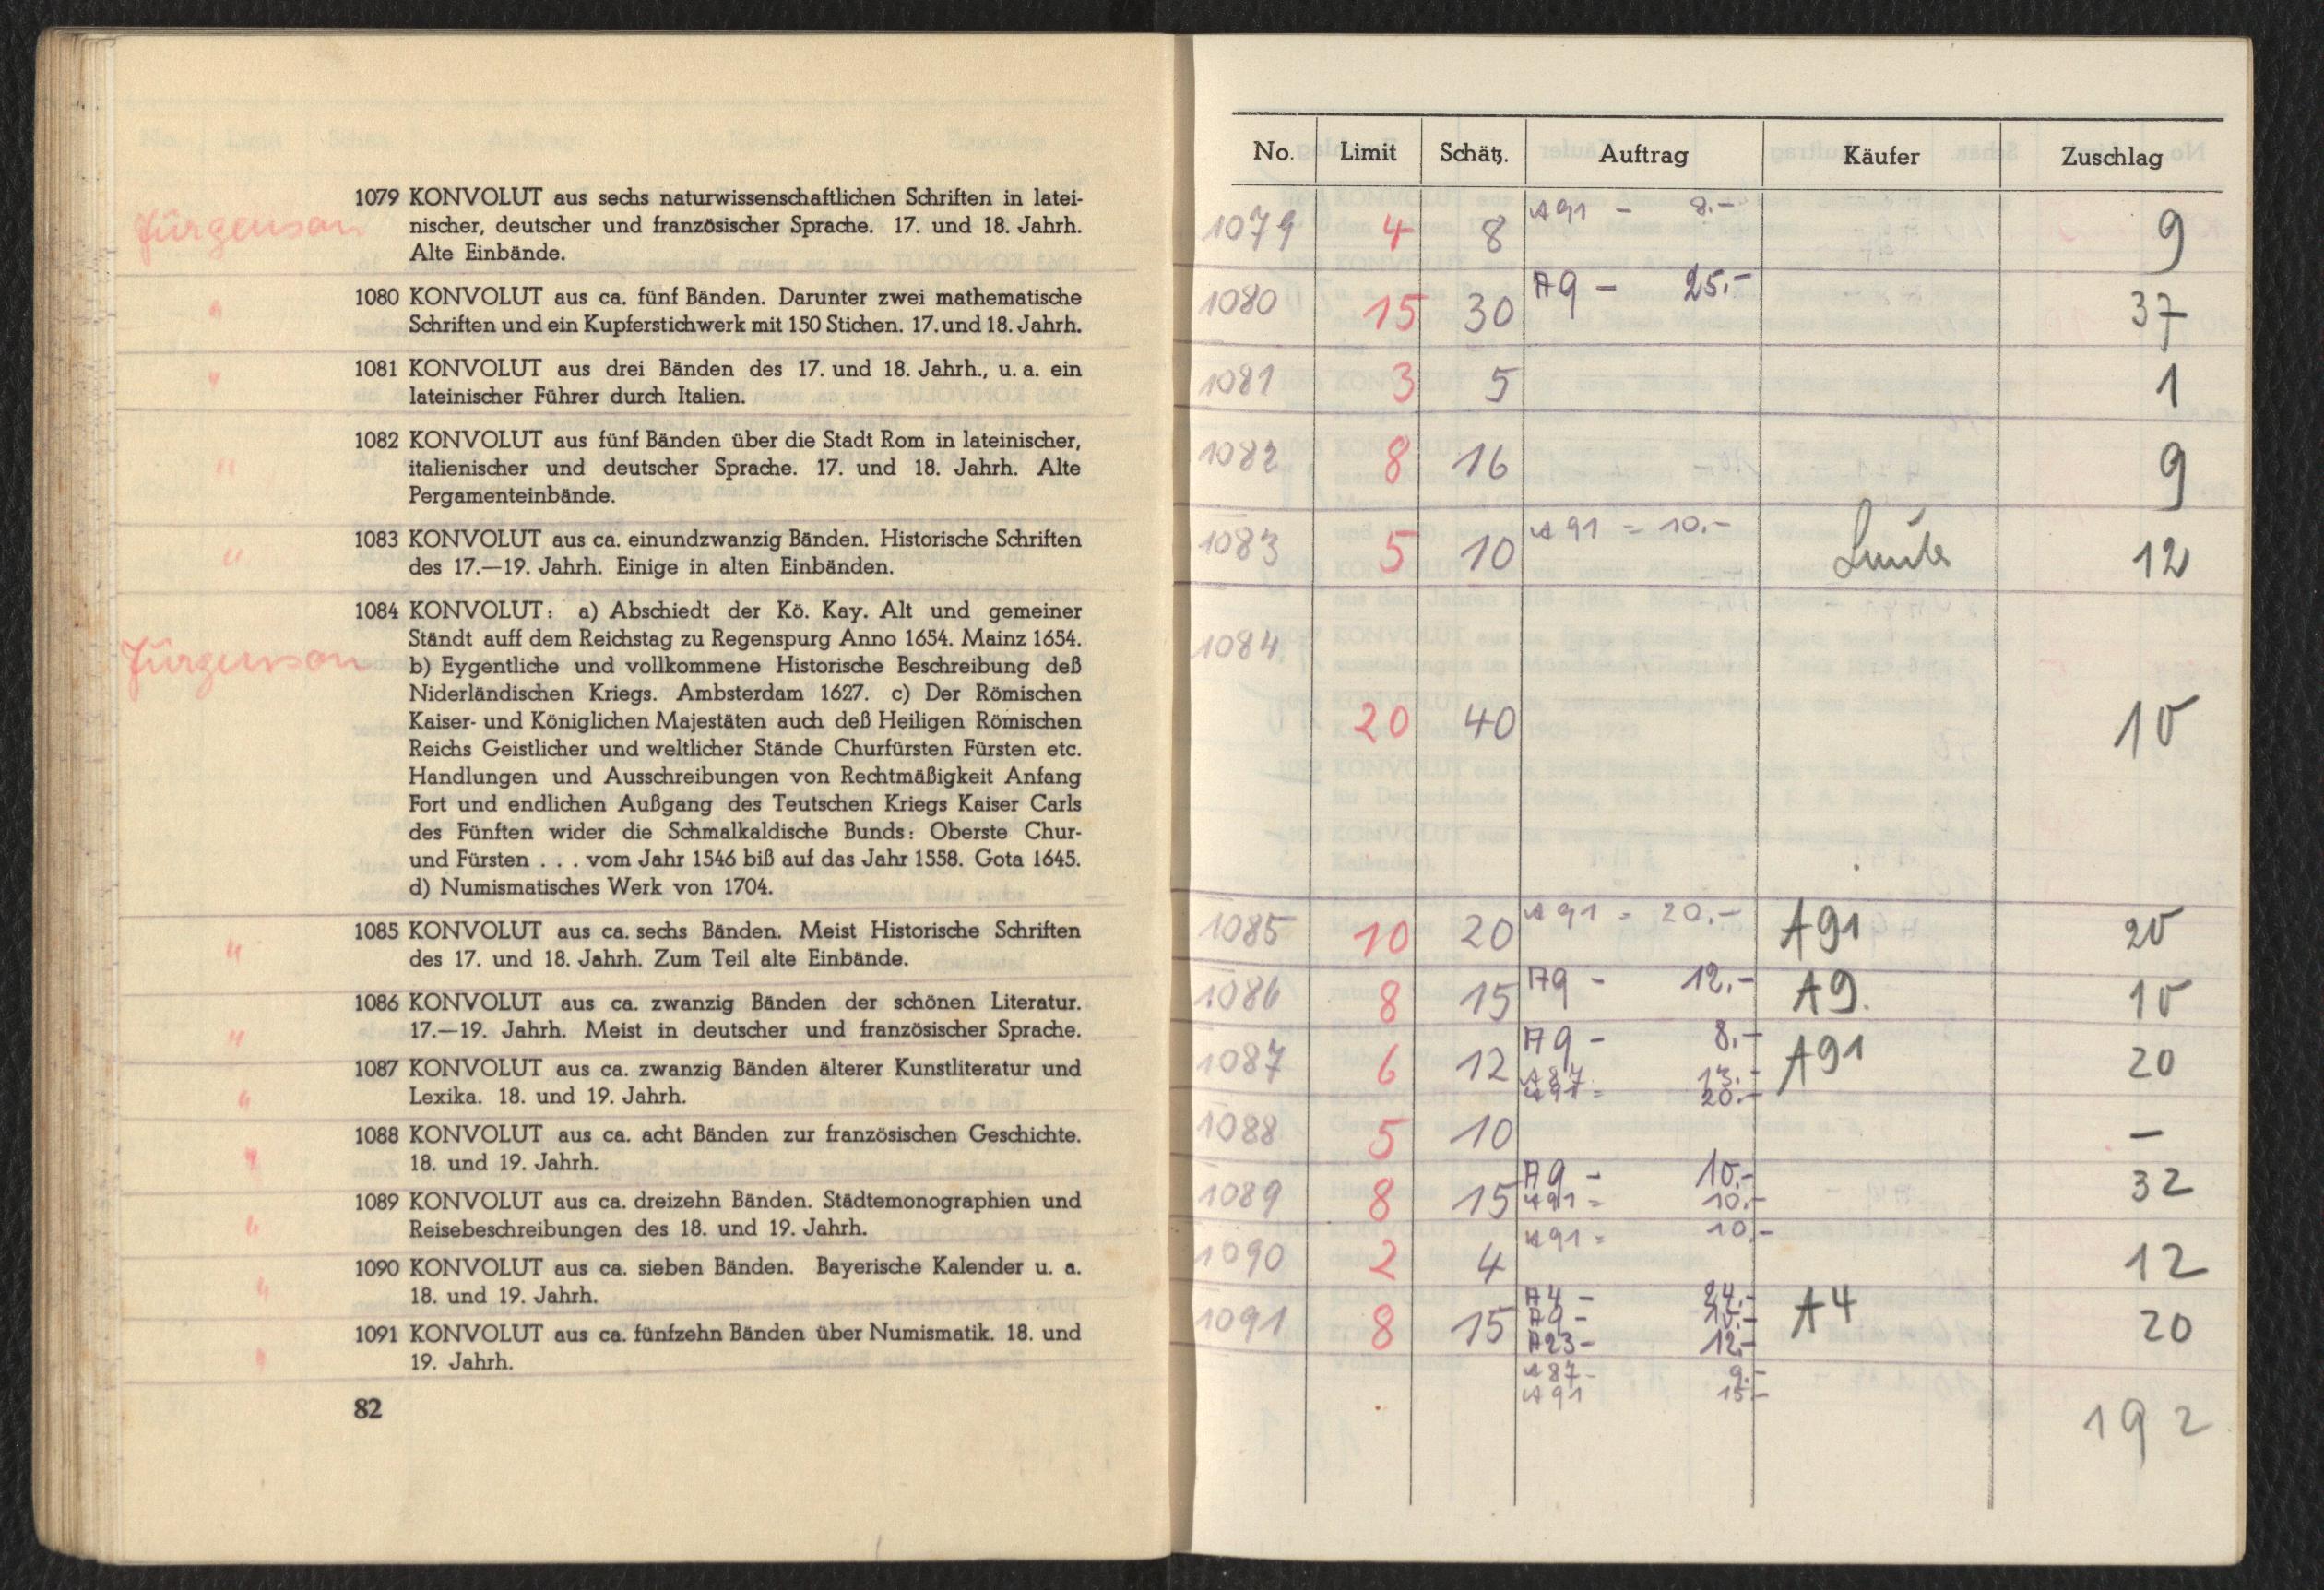 Jürgenson
1079 KONVOLUT aus sechs naturwissenschaftlichen Schriften in latei-
nischer, deutscher und französischer Sprache. 17. und 18. Jahrh.
Alte Einbände.
"
1080 KONVOLUT aus ca. fünf Bänden. Darunter zwei mathematische
Schriften und ein Kupferstichwerk mit 150 Stichen. 17. und 18. Jahrh.
"
1081 KONVOLUT aus drei Bänden des 17. und 18. Jahrh., u. a. ein
lateinischer Führer durch Italien.
"
1082 KONVOLUT aus fünf Bänden über die Stadt Rom in lateinischer,
italienischer und deutscher Sprache. 17. und 18. Jahrh. Alte
Pergamenteinbände.
"
1083 KONVOLUT aus ca. einundzwanzig Bänden. Historische Schriften
des 17.—19. Jahrh. Einige in alten Einbänden.
Jürgenson
1084 KONVOLUT: a) Abschiedt der Kö. Kay. Alt und gemeiner
Ständt auff dem Reichstag zu Regenspurg Anno 1654. Mainz 1654.
b) Eygentliche und vollkommene Historische Beschreibung deß
Niderländischen Kriegs. Ambsterdam 1627. c) Der Römischen
Kaiser- und Königlichen Majestäten auch deß Heiligen Römischen
Reichs Geistlicher und weltlicher Stände Churfürsten Fürsten etc.
Handlungen und Ausschreibungen von Rechtmäßigkeit Anfang
Fort und endlichen Außgang des Teutschen Kriegs Kaiser Carls
des Fünften wider die Schmalkaldische Bunds: Oberste Chur-
und Fürsten . . . vom Jahr 1546 biß auf das Jahr 1558. Gota 1645.
d) Numismatisches Werk von 1704.
"
1085 KONVOLUT aus ca. sechs Bänden. Meist Historische Schriften
des 17. und 18. Jahrh. Zum Teil alte Einbände.
"
1086 KONVOLUT aus ca. zwanzig Bänden der schönen Literatur.
17.—19. Jahrh. Meist in deutscher und französischer Sprache.
"
1087 KONVOLUT aus ca. zwanzig Bänden älterer Kunstliteratur und
Lexika. 18. und 19. Jahrh.
"
1088 KONVOLUT aus ca. acht Bänden zur französischen Geschichte.
18. und 19. Jahrh.
"
1089 KONVOLUT aus ca. dreizehn Bänden. Städtemonographien und
Reisebeschreibungen des 18. und 19. Jahrh.
"
1090 KONVOLUT aus ca. sieben Bänden. Bayerische Kalender u. a.
18. und 19. Jahrh.
"
1091 KONVOLUT aus ca. fünfzehn Bänden über Numismatik. 18. und
19. Jahrh.
82
No. Limit Schätz. Auftrag Käufer Zuschlag
A 91 - 8.-
1079 4 8 9
A9 - 25.-
1080 15 30 37
1081 3 5 1
1082 8 16 9
A 91 = 10.-
1083 5 10 12
1084 20 40 10
A 91 = 20.-
1085 10 20 A91 20
A9 - 12.-
1086 8 15 A9. 10
A9 - 8.-
1087 6 12 A91 20
A87 13.-
A91 = 20.-
1088 5 10 —
A9 - 10.-
1089 8 15 A91 = 10.- 32
A91 = 10.-
1090 2 4 12
A4 - 24.-
A9 - 10.-
1091 8 15 A4 20
A23 - 12.-
A87 - 9.-
A91 15.-
192